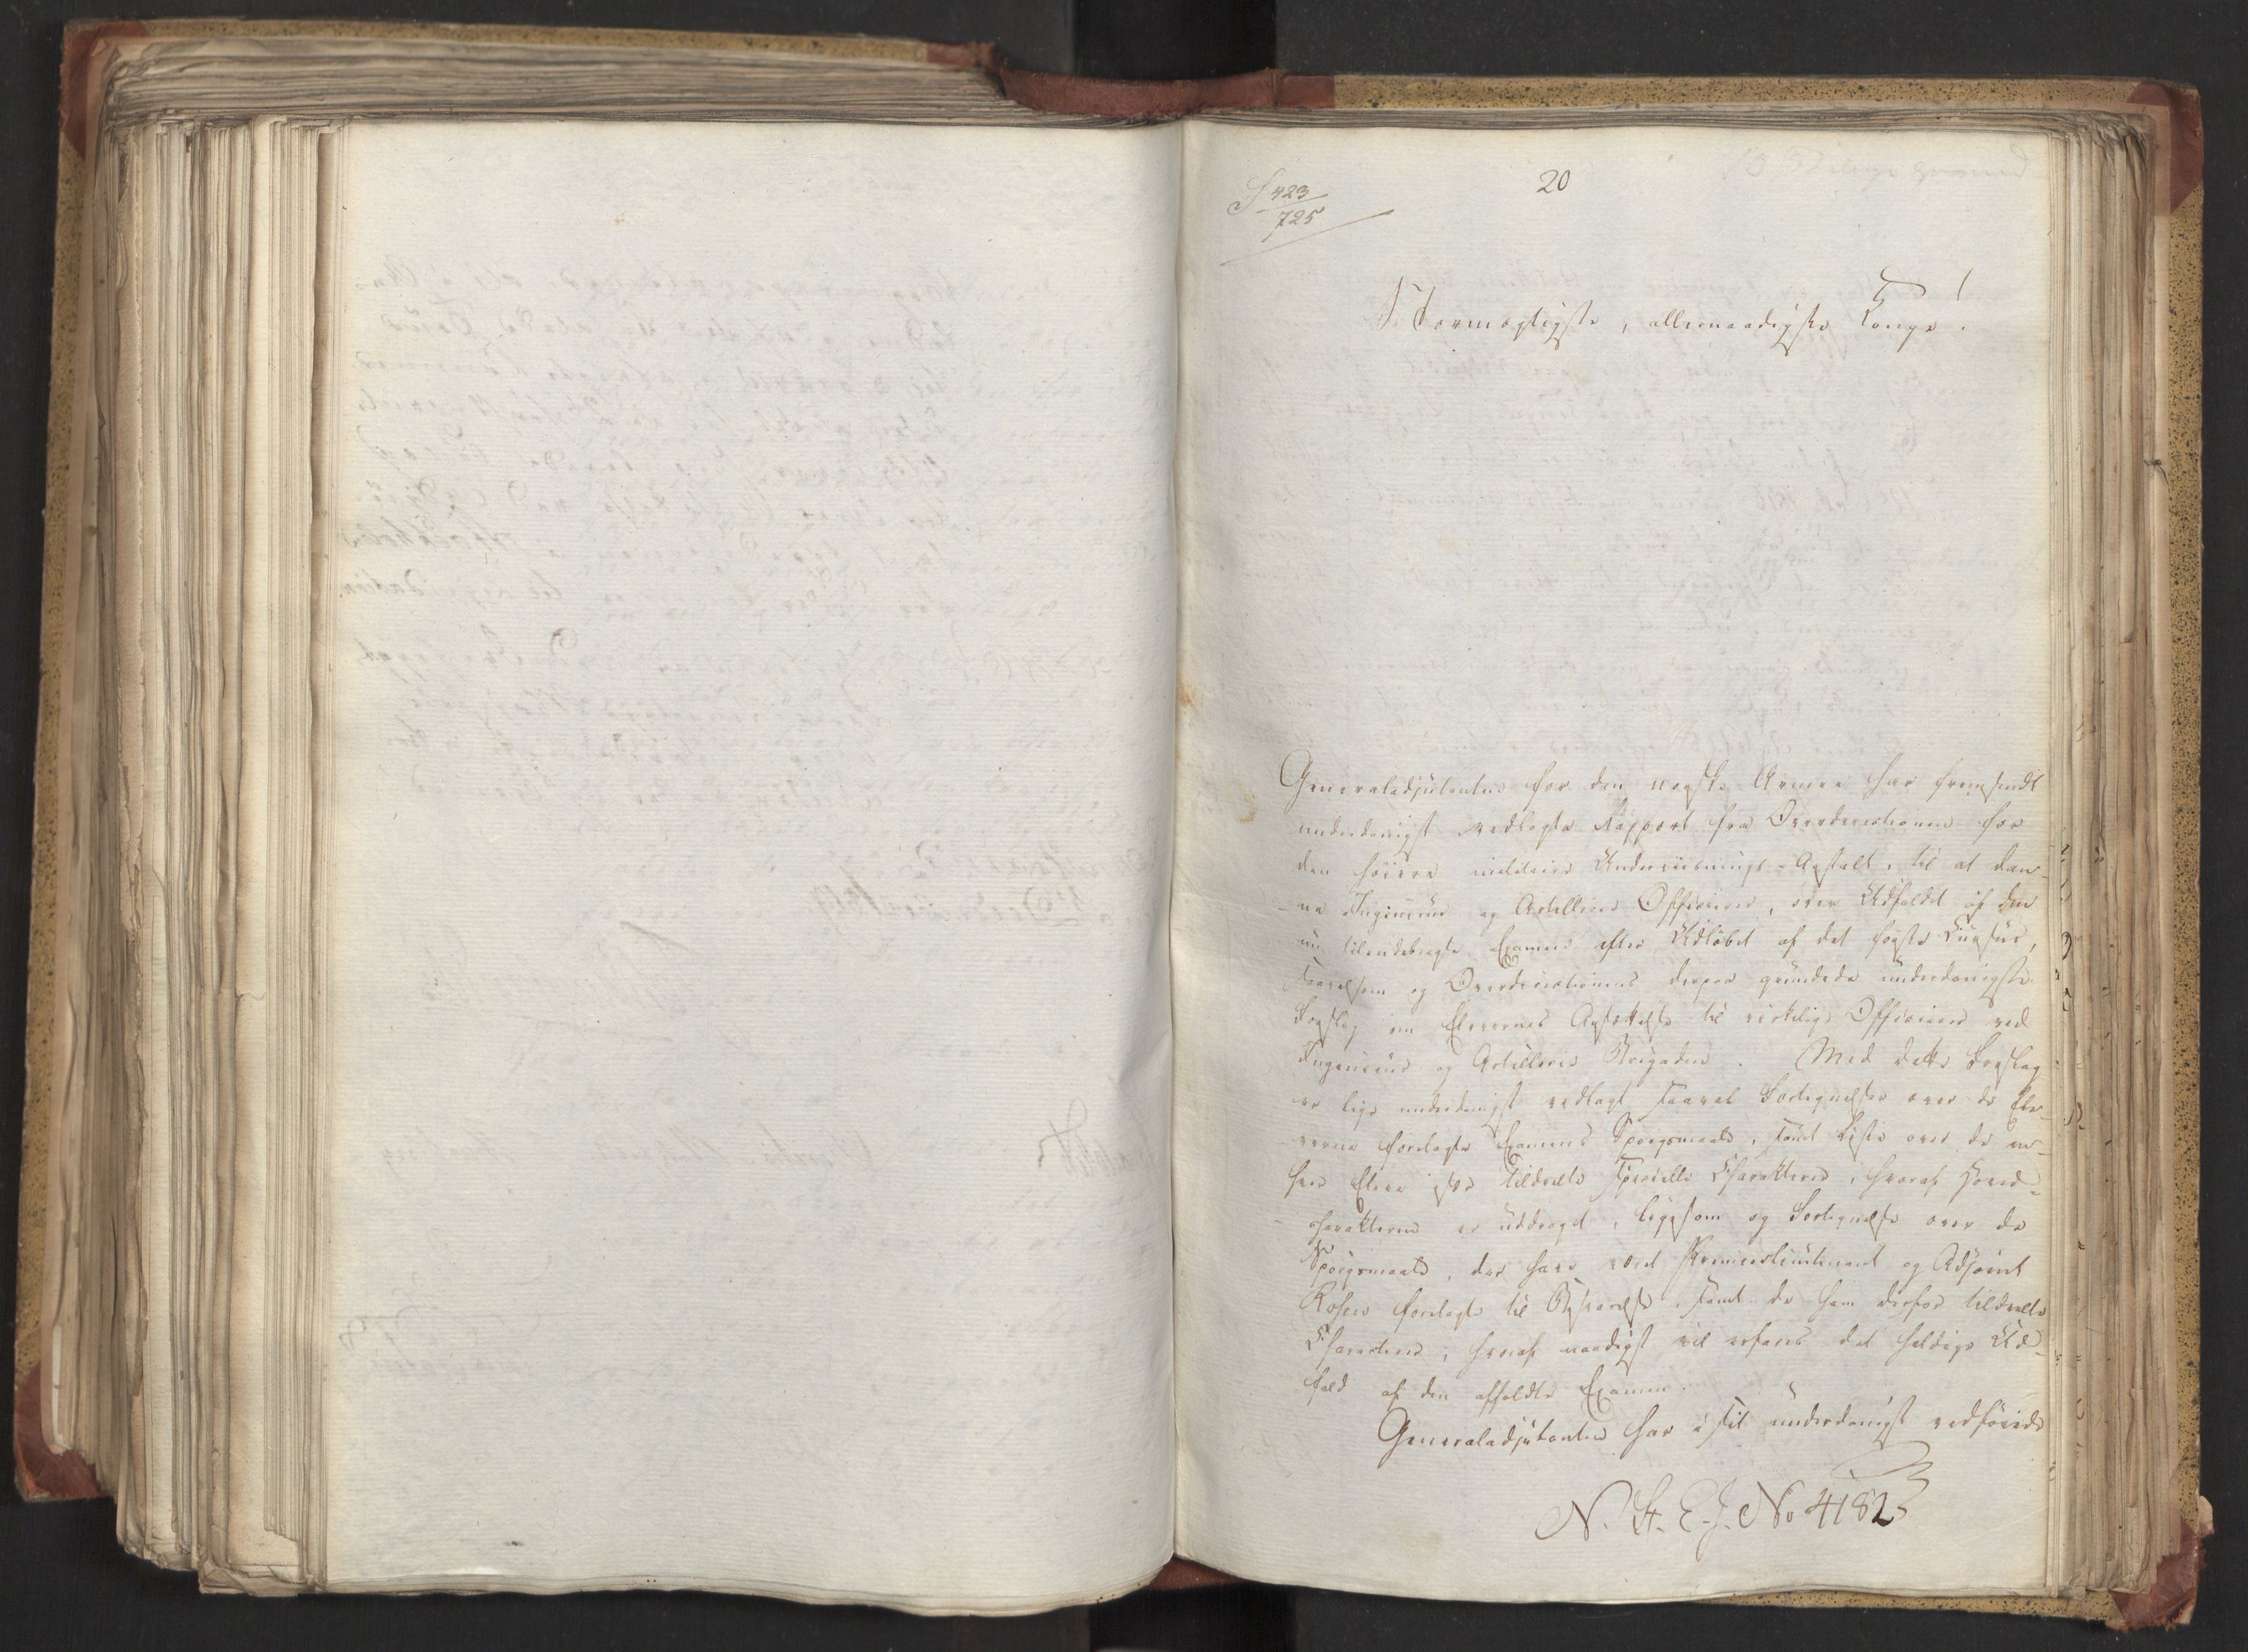 20
S 423
725
Stormægtigste, allernaadigste Konge!
Generaladjutanten for den norske Armee har fremsendt
underdanigst vedlagte Rapport fra Overdirectionen for
den høiere militaire Underviisnings-Anstalt, til at dan-
ne Ingenieur og Artillerie Officierer, over Udfaldet af den
nu tilendebragte Examen efter Udløbet af det første Cursus,
saavelsom og Overdirectionens derpaa grundede underdanigste
Forslag om Elevernes Ansættelse til virkelige Officierer ved
Ingenieur og Artillerie Brigaden. Med dette Forslag
er lige underdanigst vedlagt saavel Fortegnelse over de Ele-
verne forelagte Examens Spørgsmaale, samt Liste over de en-
hver Elev især tildeelte specielle Charakterer, hvoraf Hoved-
charakteren er uddraget, ligesom og Fortegnelse over de
Spørgsmaale, der have været Premierlieutenant og Adjoint
Rosen forelagte til Besvarelse, samt de ham derfor tildeelte
Characterer, hvoraf naadigst vil erfares det heldige Ud-
fald af den afholdte Examen.
Generaladjutanten har i sit underdanigst vedføiede
N. St. E. J. No 4182